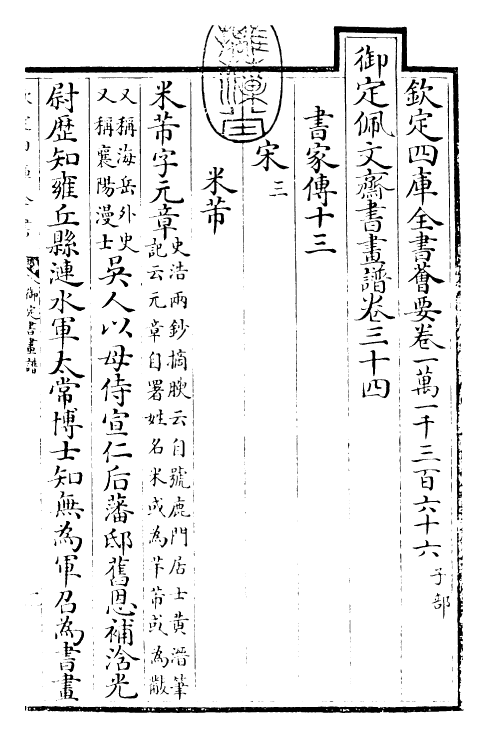 欽定四庫全書薈要卷一萬一千三百六十六子部
御定佩文齋書畫譜卷三十四
書家傳十三
宋三
米芾
米芾字元章史浩兩鈔摘腴云自號鹿門居士黃溍筆
記云元章自署姓名米或為芊芾或為黻
又稱海岳外史
又稱襄陽漫士吳人以母侍宣仁后藩邸舊恩補浛光
尉歴知雍丘縣漣水軍太常博士知無為軍召為書畫
御定書畫譜